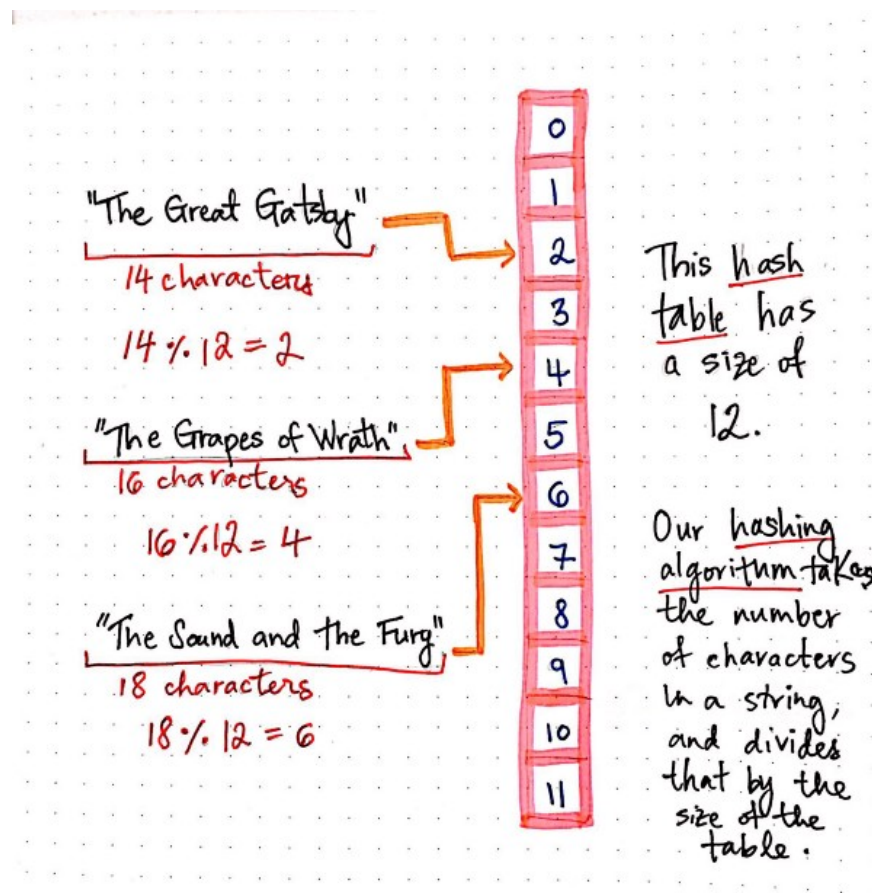 "The Great Gatsby"
14 characters
14 % 12 = 2
"The Grapes of Wrath"
16 characters
16 % 12 = 4
"The Sound and the Fury"
18 characters
18 % 12 = 6
0
1
2
3
4
5
6
7
8
9
10
11
This hash
table has
a size of
12.
Our hashing
algorithm takes
the number
of characters
in a string,
and divides
that by the
size of the
table.